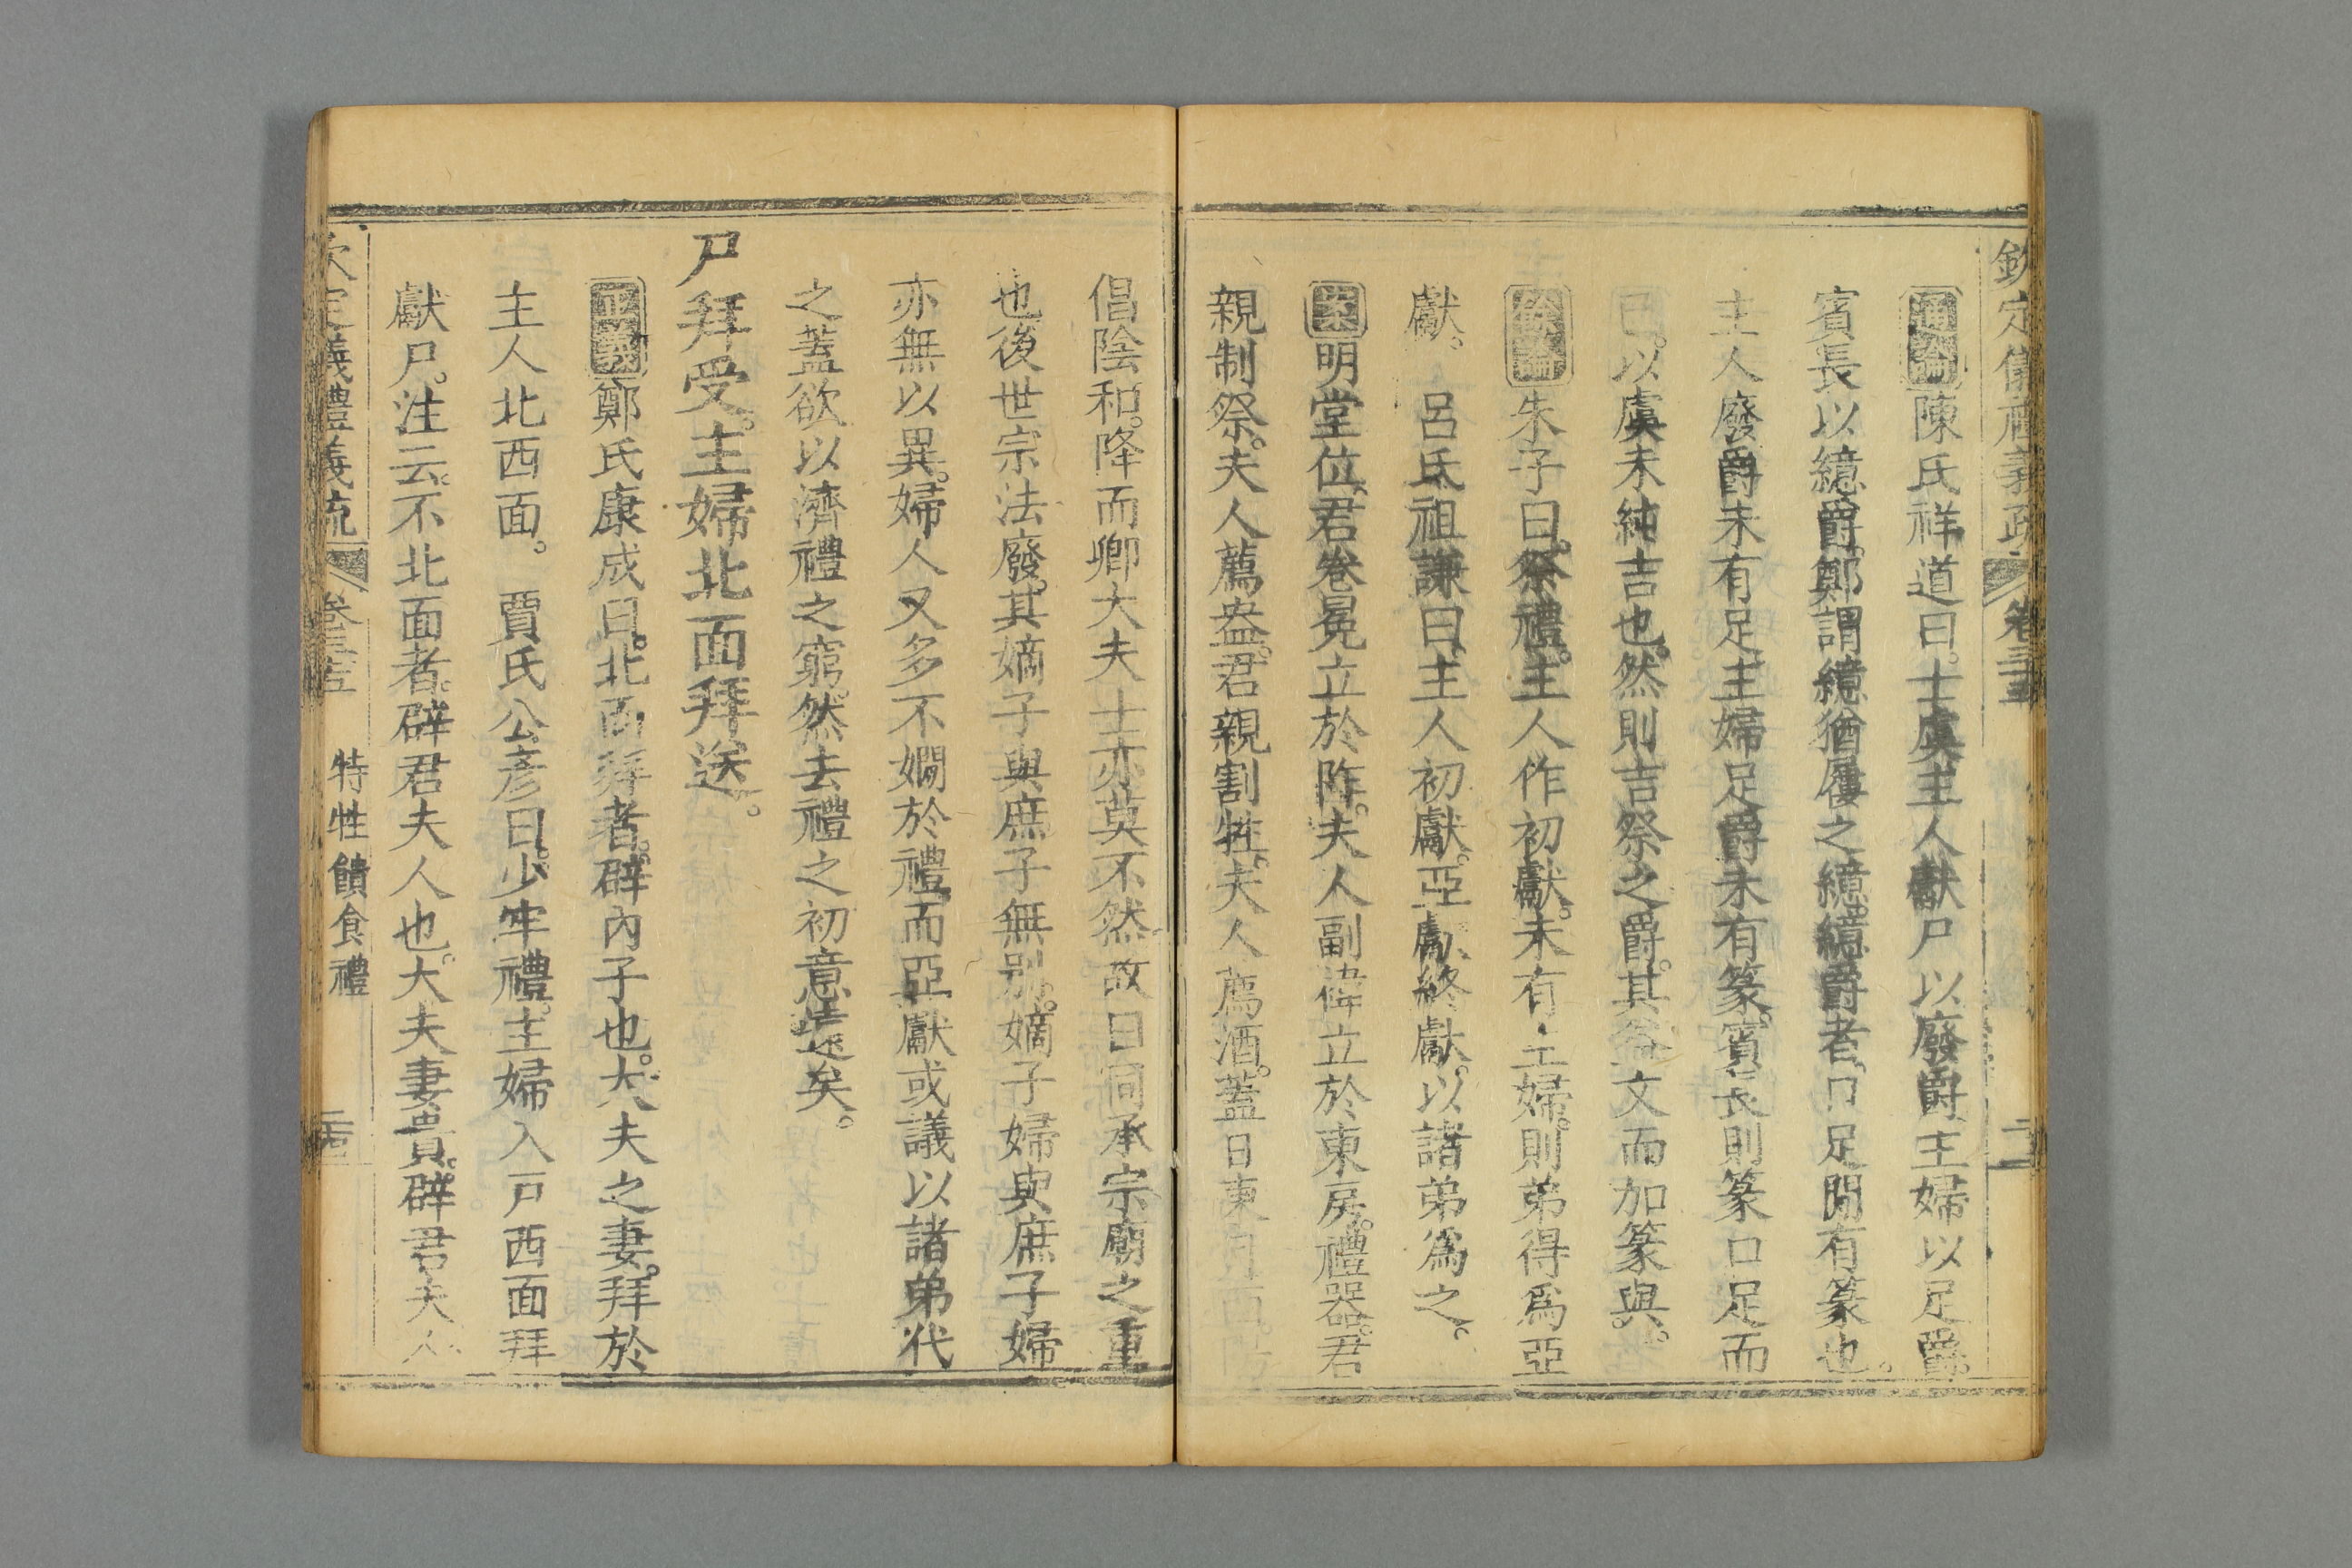 欽定儀禮義疏 卷三十五
通論陳氏祥道曰。士虞主人獻尸以廢爵。主婦以足爵。
賓長以繶爵。鄭謂繶猶屨之繶。繶爵者。口足閒有篆也。
主人廢爵未有足。主婦足爵未有篆。賓長則篆口足而
已。以虞未純吉也。然則吉祭之爵。其益文而加篆與。
餘論朱子曰。祭禮。主人作初獻。未有主婦。則弟得爲亞
獻。 呂氏祖謙曰。主人初獻。亞獻終獻。以諸弟爲之。
案明堂位。君卷冕立於阼。夫人副褘立於東房。禮器。君
親制祭。夫人薦盎。君親割牲。夫人薦酒。蓋日東月西。
倡陰和。降而卿大夫士亦莫不然。故曰同承宗廟之重
也。後世宗法廢。其嫡子與庶子無別。嫡子婦與庶子婦
亦無以異。婦人又多不嫺於禮。而亞獻或議以諸弟代
之。蓋欲以濟禮之窮。然去禮之初意遠矣。
尸拜受。主婦北面拜送。
正義鄭氏康成曰。北面拜者。辟內子也。大夫之妻。拜於
主人北西面。 賈氏公彥曰。少牢禮。主婦入戸西面拜
獻尸。注云。不北面者。辟君夫人也。大夫妻貴。辟君夫人
欽定儀禮義疏 卷三十五 特牲饋食禮